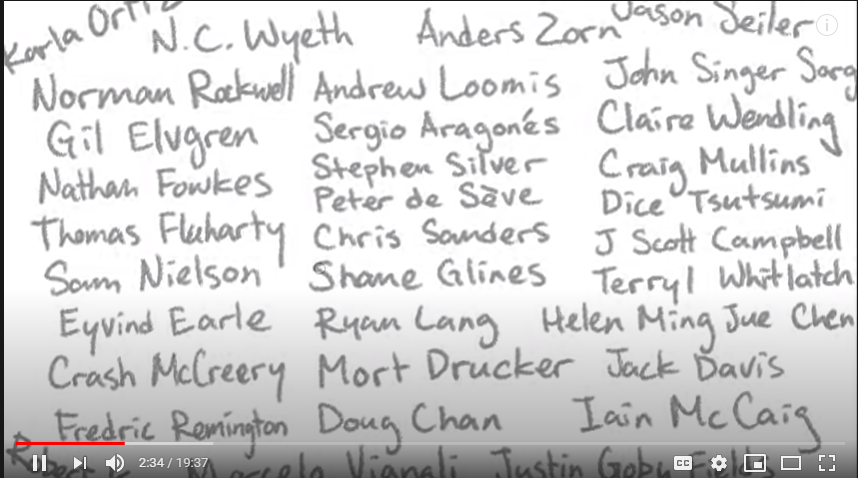 Karla Ortiz N.C. Wyeth Anders Zorn Jason Seiler
Norman Rockwell Andrew Loomis John Singer Sarg
Gil Elvgren Sergio Aragonés Claire Wendling
Nathan Fowkes Stephen Silver Craig Mullins
Peter de Sève Dice Tsutsumi
Thomas Fluharty Chris Sanders J Scott Campbell
Sam Nielson Shane Glines Terryl Whitlatch
Eyvind Earle Ryan Lang Helen Ming Jue Chen
Crash McCreery Mort Drucker Jack Davis
Fredric Remington Doug Chan Iain McCaig
Robert Marcelo Vignali Justin Goby Fields
2:34 / 19:37 CC